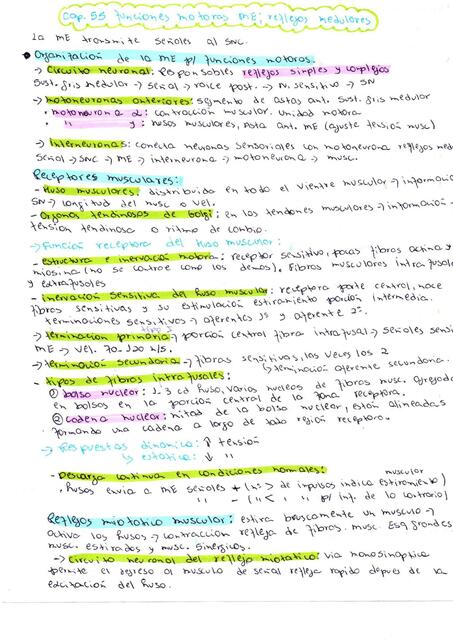 cap. 55 funciones motoras ME; reflejos medulares
La ME transmite señales al SNC.
Organización de la ME p/ funciones motoras.
→ Circuito neuronal: Responsables reflejos simples y complejos
Sust. gris medular → Señal → raíce post. → N. sensitivo → SN
→ motoneuronas anteriores: segmento de astas ant. Sust. gris medular
• motoneurona α: contracción muscular. Unidad motora
• " γ: husos musculares, Asta ant. ME (ajuste tensión musc)
→ Interneuronas: conecta neuronas sensoriales con motoneurona reflejos med
Señal → SNC → ME → interneurona → motoneurona → musc.
Receptores musculares:
- Huso musculares, distribuido en todo el vientre muscular → información
SN → longitud del musc o vel.
- Organos tendinosos de Golgi: en los tendones musculares → información -
tensión tendinosa o ritmo de cambio.
→ Función receptora del huso muscular:
- estructura e inervación motora: receptor sensitivo, pocas fibras actina y
miosina (no se contrae como los demás), Fibras musculares intrafusales
y extrafusales
- inervación sensitiva del huso muscular: receptora parte central, nace
fibras sensitivas y su estimulación estiramiento porción intermedia.
terminaciones sensitivas → aferentes 1º y aferente 2º.
tipo I
→ terminación primaria → porción central fibra intrafusal → señales sensi
ME → vel. 70-120 m/s.
→ terminación secundaria → fibras sensitivas, las veces los 2
↳ terminación aferente secundaria.
- tipos de fibras intrafusales:
① bolsa nuclear: 1-3 cd huso, varios nucleos de fibras musc. agregados
en bolsas en la porción central de la zona receptora.
② cadena nuclear: mitad de la bolsa nuclear, están alineadas
formando una cadena a largo de toda región receptora.
→ Respuestas dinámica: ↑ tensión
↳ estática: ↓ "
- Descarga continua en condiciones normales: muscular
. Husos envia a ME señales + (n: > de impulsos indica estiramiento)
" " - (" < " " p/ inf. de lo contrario)
Reflejos miotatico muscular: estira bruscamente un musculo →
activa los husos → contracción refleja de fibras. musc. Esq grandes
musc. estirados y musc. Sinergicos.
→ Circuito neuronal del reflejo miotatico: via monosináptica
permite el regreso al musculo de señal refleja rapido depues de la
excitación del huso.